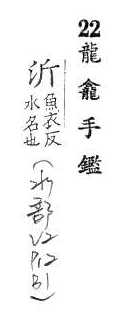 22龍龕手鑑
沂
魚衣反
水名也
(水部